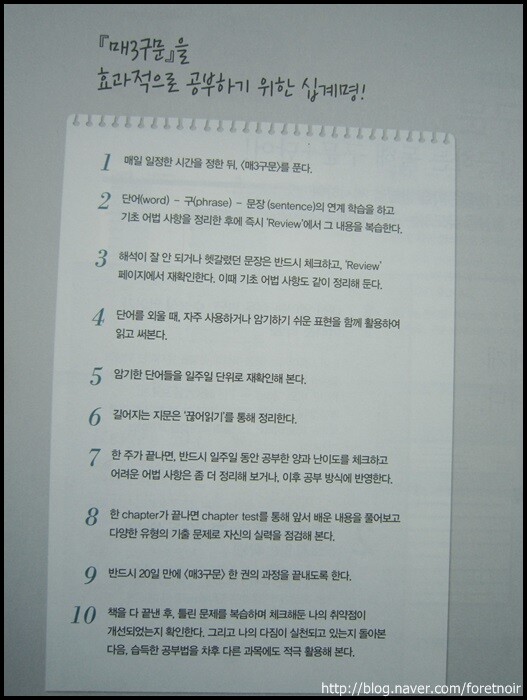 『매3구문』을
효과적으로 공부하기 위한 십계명!
1 매일 일정한 시간을 정한 뒤, 〈매3구문〉를 푼다.
2 단어(word) - 구(phrase) - 문장 (sentence)의 연계 학습을 하고
기초 어법 사항을 정리한 후에 즉시 'Review'에서 그 내용을 복습한다.
3 해석이 잘 안 되거나 헷갈렸던 문장은 반드시 체크하고, 'Review'
페이지에서 재확인한다. 이때 기초 어법 사항도 같이 정리해 둔다.
4 단어를 외울 때, 자주 사용하거나 암기하기 쉬운 표현을 함께 활용하여
읽고 써본다.
5 암기한 단어들을 일주일 단위로 재확인해 본다.
6 길어지는 지문은 '끊어읽기'를 통해 정리한다.
7 한 주가 끝나면, 반드시 일주일 동안 공부한 양과 난이도를 체크하고
어려운 어법 사항은 좀 더 정리해 보거나, 이후 공부 방식에 반영한다.
8 한 chapter가 끝나면 chapter test를 통해 앞서 배운 내용을 풀어보고
다양한 유형의 기출 문제로 자신의 실력을 점검해 본다.
9 반드시 20일 만에 〈매3구문〉 한 권의 과정을 끝내도록 한다.
10 책을 다 끝낸 후, 틀린 문제를 복습하며 체크해둔 나의 취약점이
개선되었는지 확인한다. 그리고 나의 다짐이 실천되고 있는지 돌아본
다음, 습득한 공부법을 차후 다른 과목에도 적극 활용해 본다.
http://blog.naver.com/foretnoir